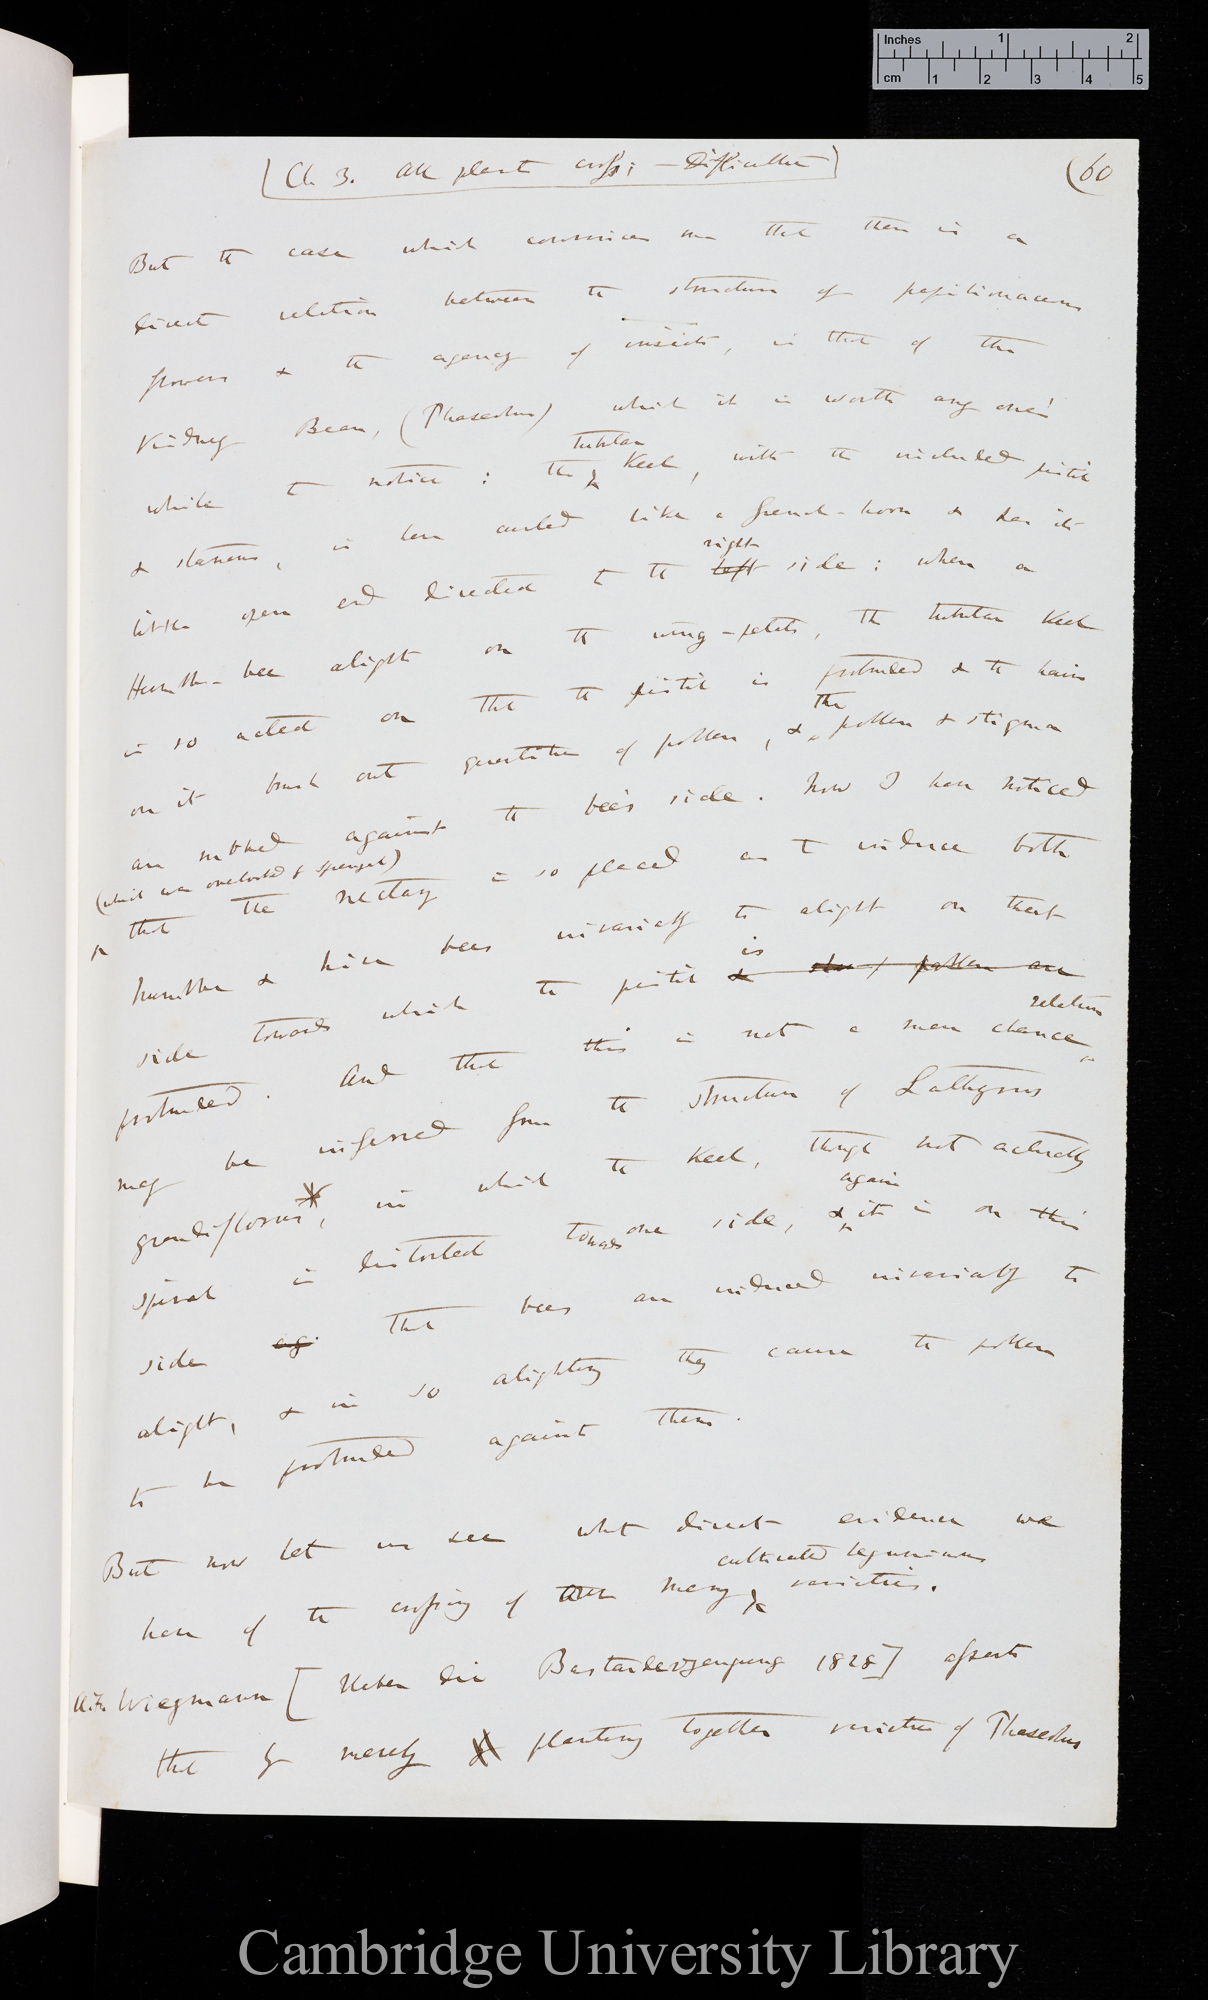 Inches 1 2
cm 1 2 3 4 5
(Ch 3. All plants cross; — Difficulties)
(60
But the case which convinces me that there is a
direct relation between the structure of papilionaceous
flowers & the agency of insects, is that of the
Kidney Bean, (Phaseolus) which it is worth any one's
tubular
while to notice: the keel, with the included pistil
& stamens, is here curled like a french-horn & has its
right
little open end directed to the left side: when a
Humble-bee alights on the wing-petals, the tubular keel
is so acted on that the pistil is protruded & the hairs
the
on it brush out quantities of pollen, & pollen & stigma
are rubbed against the bee's side. Now I have noticed
(which was overlooked by Sprengel)
that the nectary is so placed as to induce both
humble & hive bees invariably to alight on that
is
side towards which the pistil & pollen are
relation
protruded. And that this is not a mere chance
may be inferred from the structure of Lathyrus
grandiflorus, in which the keel, though not actually
again
spiral is distorted towards one side, & it is on this
side ag that bees are induced invariably to
alight, & in so alighting they cause the pollen
to be protruded against them.
But now let us see what direct evidence we
cultivated leguminous
have of the crossing of many varieties.
A.F. Wiegmann [Ueber die Bastarderzeugung 1828] asserts
that by merely planting together varieties of Phaseolus
Cambridge University Library